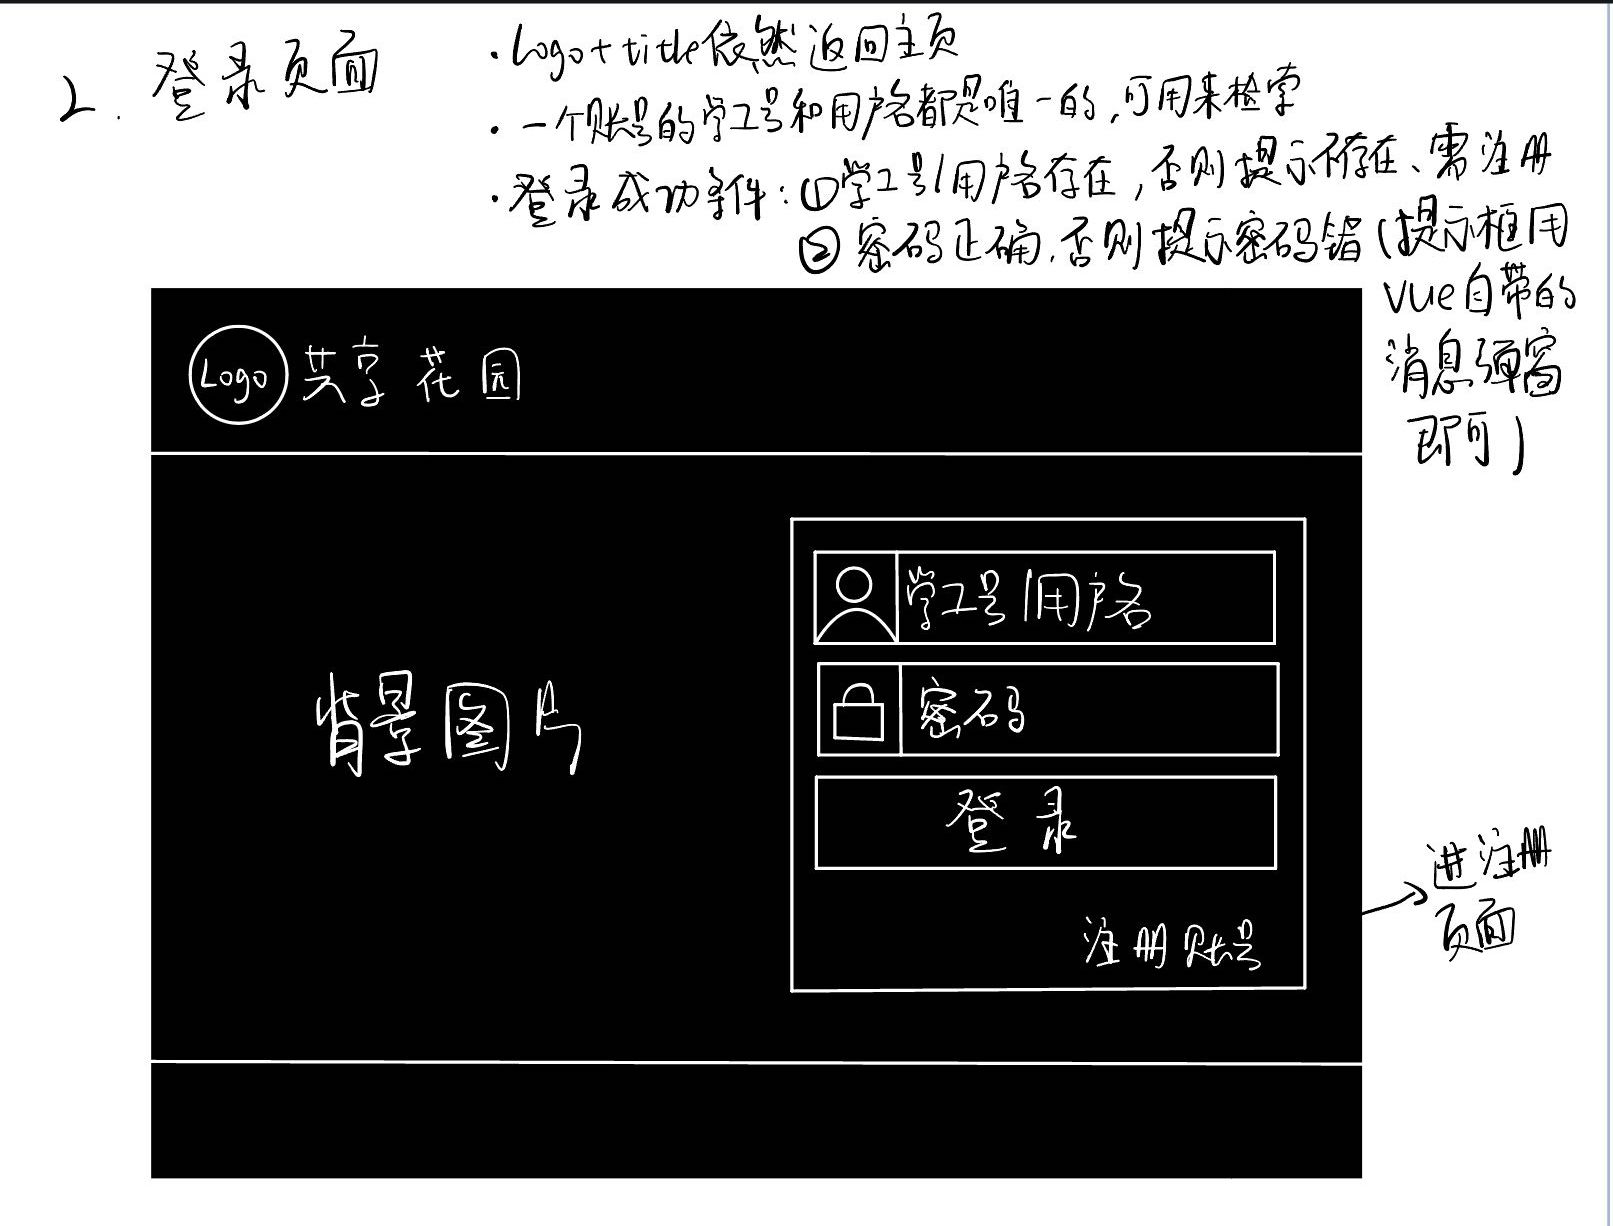 2. 登录页面
· Logo+title依然返回主页
· 一个账号的学工号和用户名都是唯一的,可用来检索
· 登录成功条件:①学工号/用户名存在,否则提示不存在、需注册
②密码正确,否则提示密码错(提示框用
vue自带的
消息弹窗
即可)
Logo 共享花园
学工号/用户名
密码
背景图片
登录
注册账号
进注册
页面